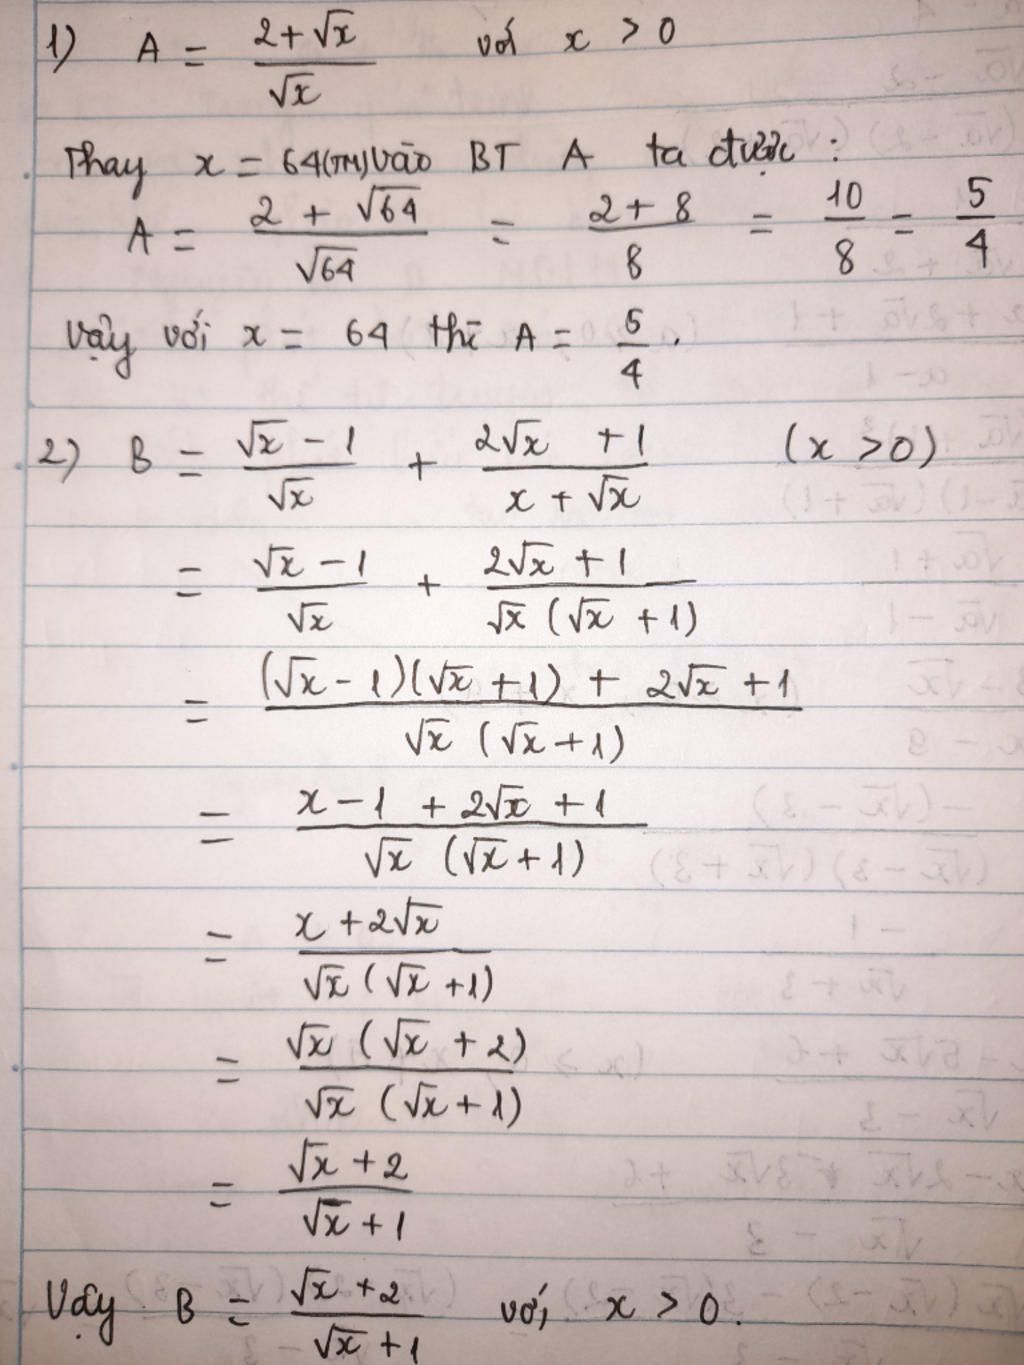 1) A = (2+√x)/√x với x > 0
Thay x = 64(TM) vào BT A ta được :
A = (2 + √64)/√64 = (2 + 8)/8 = 10/8 = 5/4
Vậy với x = 64 thì A = 5/4 .
2) B = (√x - 1)/√x + (2√x + 1)/(x + √x) (x > 0)
= (√x - 1)/√x + (2√x + 1)/(√x (√x + 1))
= ((√x - 1)(√x + 1) + 2√x + 1)/(√x (√x + 1))
= (x - 1 + 2√x + 1)/(√x (√x + 1))
= (x + 2√x)/(√x (√x + 1))
= (√x (√x + 2))/(√x (√x + 1))
= (√x + 2)/(√x + 1)
Vậy B = (√x + 2)/(√x + 1) với x > 0.